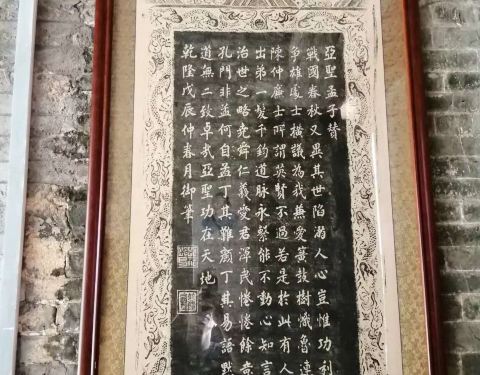 亞聖孟子贊
戰國春秋又異其世陷溺人心豈惟功利
争雄處士橫議為我兼愛簧鼓樹幟魯連
陳仲廉士所謂英賢不過若是於此有人
出弟一髮千鈞道脉永繫能不動心知言
治世之略堯舜仁義愛君澤民惓惓餘意
孔門非孟何自孟丁其難顏丁其易語默
道無二致卓哉亞聖功在天地
乾隆戊辰仲春月御筆